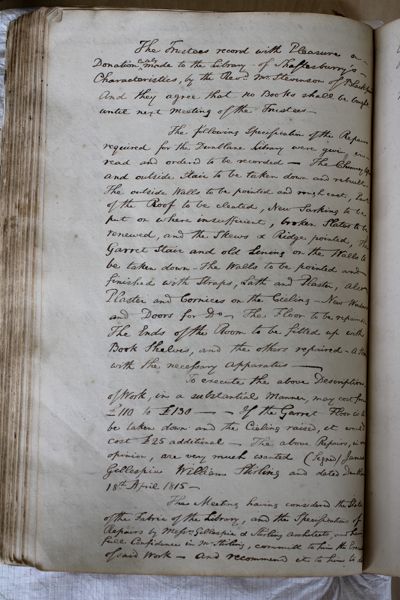 The Trustees record with Pleasure a
Donation lately made to the Library of Shaftesbury's
Characteristics, by the Revd. Mr. Stevenson of
And they agree that no Books shall be bought
until next Meeting of the Trustees
The following Specification of the Repairs
required for the Dunblane Library were given in
read and orderd to be recorded — The Chimney tops
and outside Stair to be taken down and rebuilt
The outside Walls to be pointed and rough cast,
of the Roof to be cleated, New Sarking to be
put on where insufficient, broken Slates to be
renewed, and the Skews & Ridge pointed, the
Garret Stair and old Lining on the Walls to
be taken down — The Walls to be pointed and
finished with Straps, Lath and Plaster, also
Plaster and Cornices on the Cieling — New Windows
and Doors for Do — The Floor to be repaired
The Ends of the Room to be fitted up with
Book Shelves, and the others repaired
with the necessary apparatus —
To execute the above Description
of Work, in a substantial Manner, may cost from
£110 to £130 — — If the Garret Floor is to
be taken down and the Cieling raised, it would
cost £25 additional — The above Repairs, in our
opinion, are very much wanted (Signed) James
Gillespie William Stirling and dated Dunblane
18th April 1815 —
The Meeting having considered the State
of the Fabric of the Library, and the Specification of
Repairs by Messrs. Gillespie & Stirling Architects, and have
full Confidence in Mr. Stirling, committ to him the
of said Work — and recommend it to him to